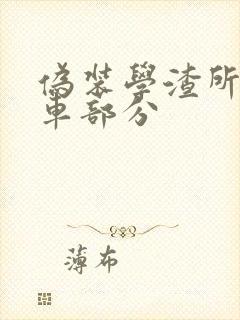 偽裝學渣所
車部分
薄布